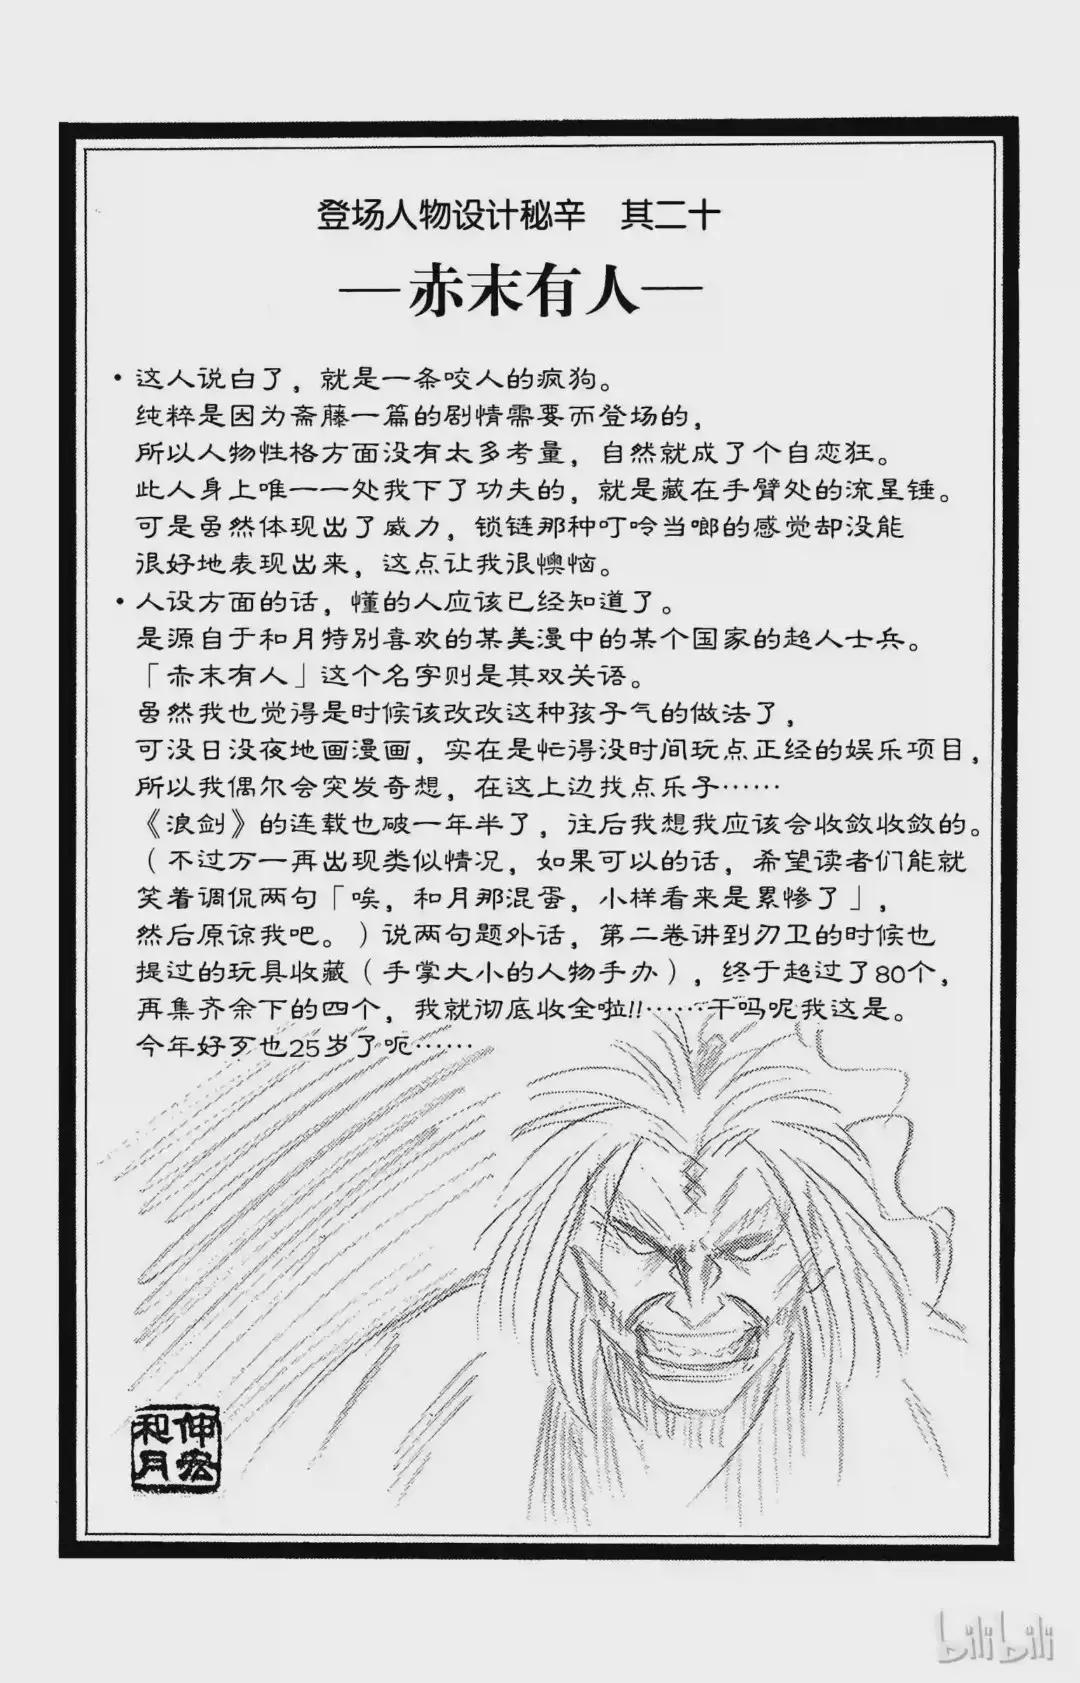 登场人物设计秘辛　其二十
—赤末有人—
・这人说白了，就是一条咬人的疯狗。
纯粹是因为斋藤一篇的剧情需要而登场的，
所以人物性格方面没有太多考量，自然就成了个自恋狂。
此人身上唯一一处我下了功夫的，就是藏在手臂处的流星锤。
可是虽然体现出了威力，锁链那种叮呤当啷的感觉却没能
很好地表现出来，这点让我很懊恼。
・人设方面的话，懂的人应该已经知道了。
是源自于和月特别喜欢的某美漫中的某个国家的超人士兵。
「赤末有人」这个名字则是其双关语。
虽然我也觉得是时候该改改这种孩子气的做法了，
可没日没夜地画漫画，实在是忙得没时间玩点正经的娱乐项目，
所以我偶尔会突发奇想，在这上边找点乐子……
《浪剑》的连载也破一年半了，往后我想我应该会收敛收敛的。
（不过万一再出现类似情况，如果可以的话，希望读者们能就
笑着调侃两句「唉，和月那混蛋，小样看来是累惨了」，
然后原谅我吧。）说两句题外话，第二卷讲到刃卫的时候也
提过的玩具收藏（手掌大小的人物手办），终于超过了80个，
再集齐余下的四个，我就彻底收全啦!!……干吗呢我这是。
今年好歹也25岁了呃……
和月
伸宏
bilibili